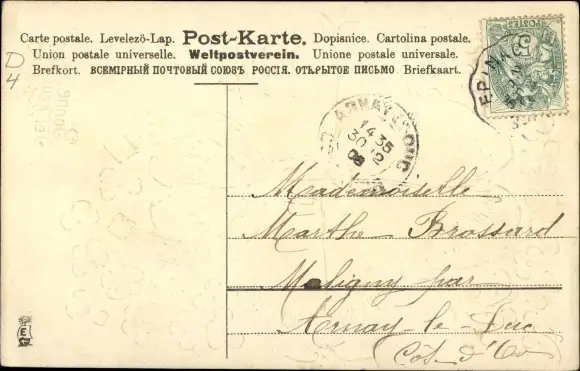 Carte postale. Levelezö-Lap. Post-Karte. Dopisnice. Cartolina postale.
Union postale universelle. Weltpostverein. Unione postale universale.
Brefkort. ВСЕМІРНЫЙ ПОЧТОВЫЙ СОЮЗЪ РОССІЯ. ОТКРЫТОЕ ПИСЬМО Briefkaart.
D
4
5
POSTES
EPIN
ARNAY-LE-DUC
14 35
30 12
06
Mademoiselle
Marthe Brossard
Maligny par
Arnay-le-Duc
Côte d'Or
E